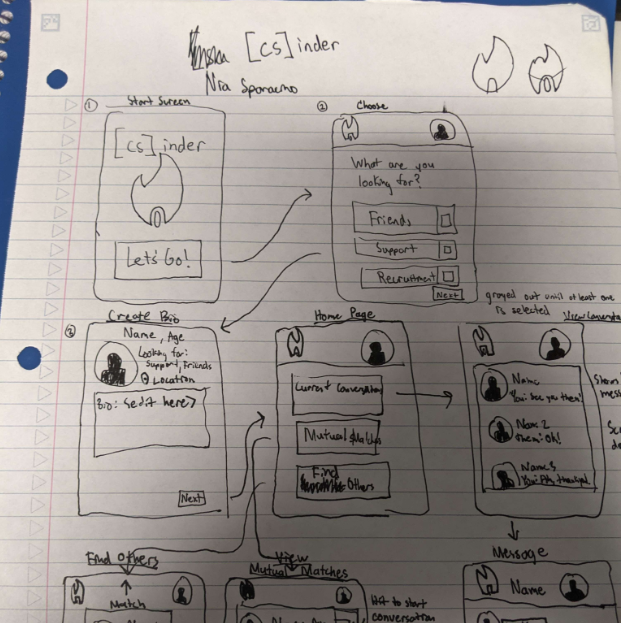 [cs]inder
Nia
① Start Screen
[cs]inder
Let's Go!
② Choose
What are you
looking for?
Friends
Support
Recruitment
Next
grayed out until at least one
is selected
③ Create Bio
Name, Age
Looking for:
Support, Friends
Location
Bio: <edit here>
Next
Home Page
Current Conversations
Mutual Matches
Find
Others
View
Name
You: See you then!
Name 2
Them: Oh!
Name 3
You:
Find Others
Match
View
Mutual Matches
Hit to start
conversation
Message
Name